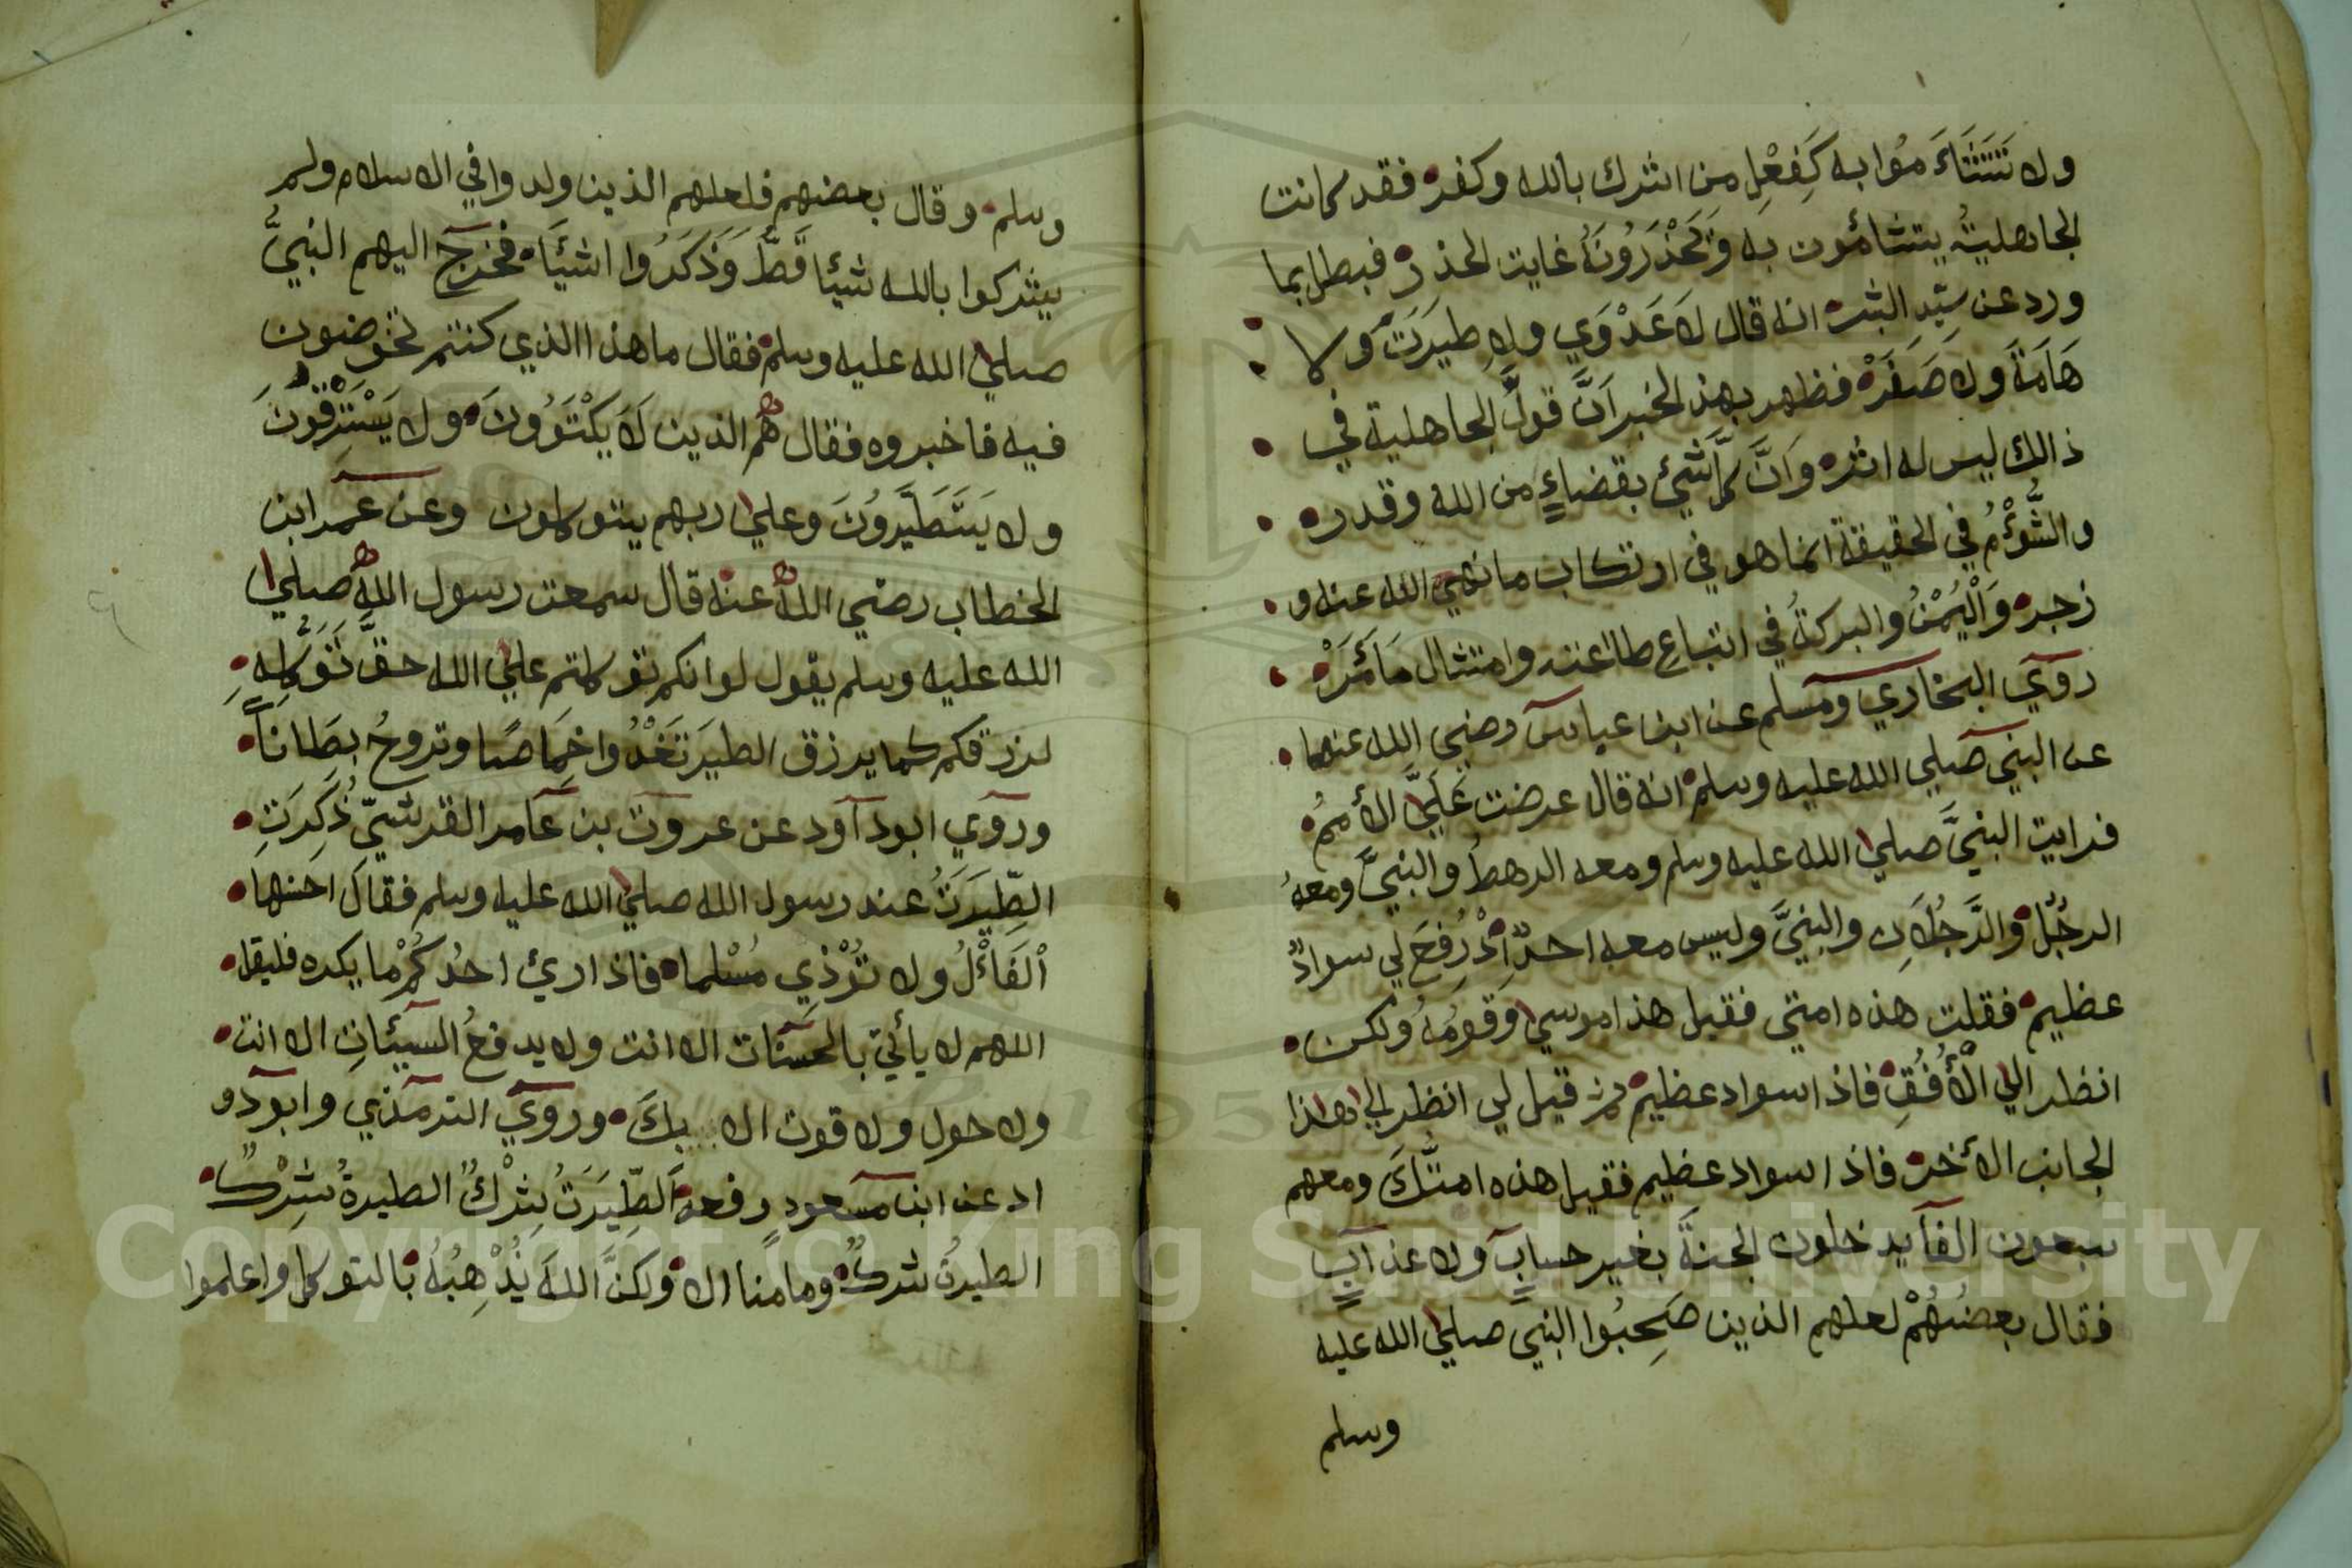 ولا تَتَشَاءَمُوا به كَفِعْلِ من اشرك بالله وكفر فقد كانت
الجاهلية يتشائمون به وَيَحْذَرُونَهُ غايت الحذر فبطل بما
ورد عن سَيِّدِ البشر انه قال لَا عَدْوَي ولا طِيَرَتَ ولا
هَامَةَ ولا صَفَرَ فظهر بهذ الخبر اَنَّ قولَ الجاهلية في
ذالك ليس له اثر وَاَنَّ كلَّ شَيْئٍ بقضاءٍ من الله وقدره
والشُّؤْمُ في الحقيقة انما هو في ارتكاب ما نهي الله عنه و
زجر وَالْيُمْنُ والبركةُ في اتباع طاعته وامتثال مَا أَمَرْ
روي البخاري ومسلم عن ابن عباس رضي الله عنهما
عن النبي صلي الله عليه وسلم انه قال عرضت عَلَيَّ الأممُ
فرايت النبيَّ صلي الله عليه وسلم ومعه الرهطُ والنبيَّ ومعهُ
الرجُلُ والرَّجُلَانِ والنبيَّ وليس معه احدٌ اِذْ رُفِعَ لي سوادٌ
عظيم فقلت هذه امتي فقيل هذا موسي وَقَومُهُ ولكن
انظر الي الْأُفُقِ فاذا سواد عظيم ثم قيل لي انظر الي هذا
الجانب الأخر فاذا سواد عظيم فقيل هذه امتُكَ ومعهم
سبعون الفا يدخلون الجنةَ بغير حسابٍ ولا عذابٍ
فقال بعضُهُمْ لعلهم الذين صَحِبُوا النبي صلي الله عليه
وسلم
وسلم وقال بعضهم فلعلهم الذين ولدوا في الاسلام ولم
يشركوا بالله شيئا قَطُّ وَذَكَرُوا اشيَاَ فخرج اليهم النبيُّ
صلي الله عليه وسلم فقال ما هذا الذي كنتم تخوضون
فيه فاخبروه فقال هُم الذين لَا يَكْتَوُونَ ولا يَسْتَرْقُونَ
ولا يَتَطَيَّرُونَ وعلي ربهم يتوكلون وعن عمر ابن
الخطاب رضي اللهُ عنه قال سمعت رسول اللهِ صلي
الله عليه وسلم يقول لو انكم توكلتم علي الله حقَّ تَوَكُّلِهِ
لرزقكم كما يرزق الطيرَ تَغْدُوا خِمَاصًا وتروحُ بِطَاناً
وروي ابو داود عن عروت بن عامر القرشيّ ذُكِرَتِ
الطِّيَرَتُ عند رسول الله صلي الله عليه وسلم فقال احسنها
اْلفَاْلُ ولا تُرْذِي مُسْلِما فاذا رئ احدُكُمْ ما يكره فليقل
اللهم لا يأتي بالحسنات الا انت ولا يدفعُ السيئاتِ الا انت
ولا حول ولا قوت الا بِكَ وروي الترمذي وابو دو
اد عن ابن مسعودٍ رفعه اَلطِّيَرَتُ شِرْكٌ الطيرةُ شِرْكٌ
الطيرتُ شركٌ وما منا الا ولكنَّ اللهَ يُذْهِبُهُ بالتوكل واعلموا
Copyright © King Saud University